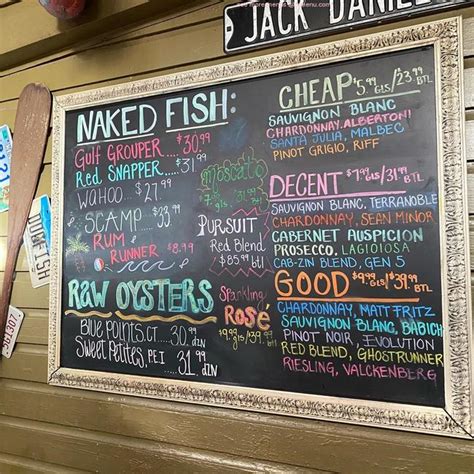 JACK DANIEL
NAKED FISH:
Gulf GROUPER.....$30.99
Red SNAPPER....$31.99
WAHOO...$27.99
SCAMP...$33.99
RUM
RUNNER $8.19
RAW OYSTERS
Blue POINTS.CT....30.99 DZN
Sweet Petites, PEI....31.99 DZN
moscato
PURSUIT
Red Blend
$85.99 btl
Sparkling
Rosé
$9.99 gls/39.99
CHEAP $5.99 GLS/23.99 BTL
SAUVIGNON BLANC
CHARDONNAY, ALBERTONI
SANTA JULIA, MALBEC
PINOT GRIGIO, RIFF
DECENT
GLS/31.99 BTL
SAUVIGNON BLANC, TERRANOBLE
CHARDONNAY, SEAN MINOR
CABERNET AUSPICION
PROSECCO, LAGIOIOSA
CAB-ZIN BLEND, GEN 5
GOOD $9.99 GLS/$39.99 BTL
CHARDONNAY, MATT FRITZ
SAUVIGNON BLANC, BABICH
PINOT NOIR, EVOLUTION
RED BLEND, GHOSTRUNNER
RIESLING, VALCKENBERG